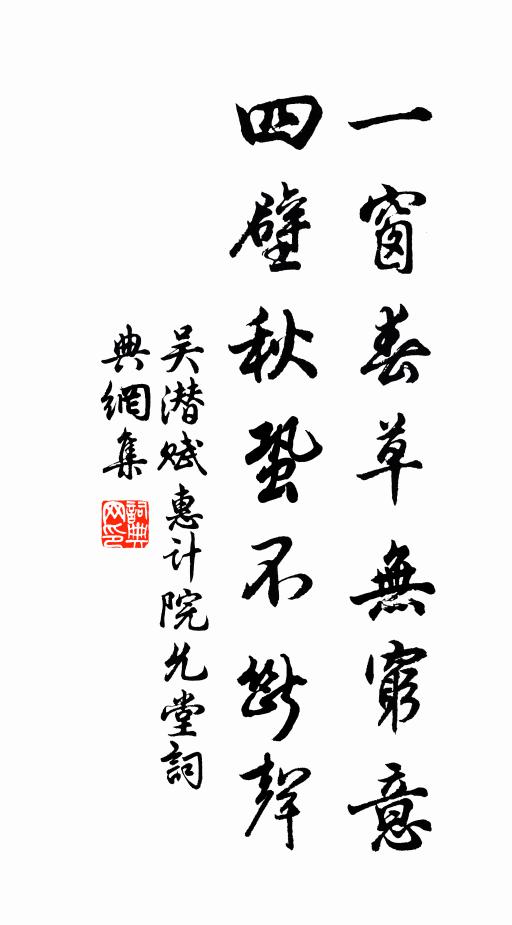 一窗春草無窮意
四壁秋蛩不斷聲
吴潜赋惠计院允堂詞
典網集
詞典網印